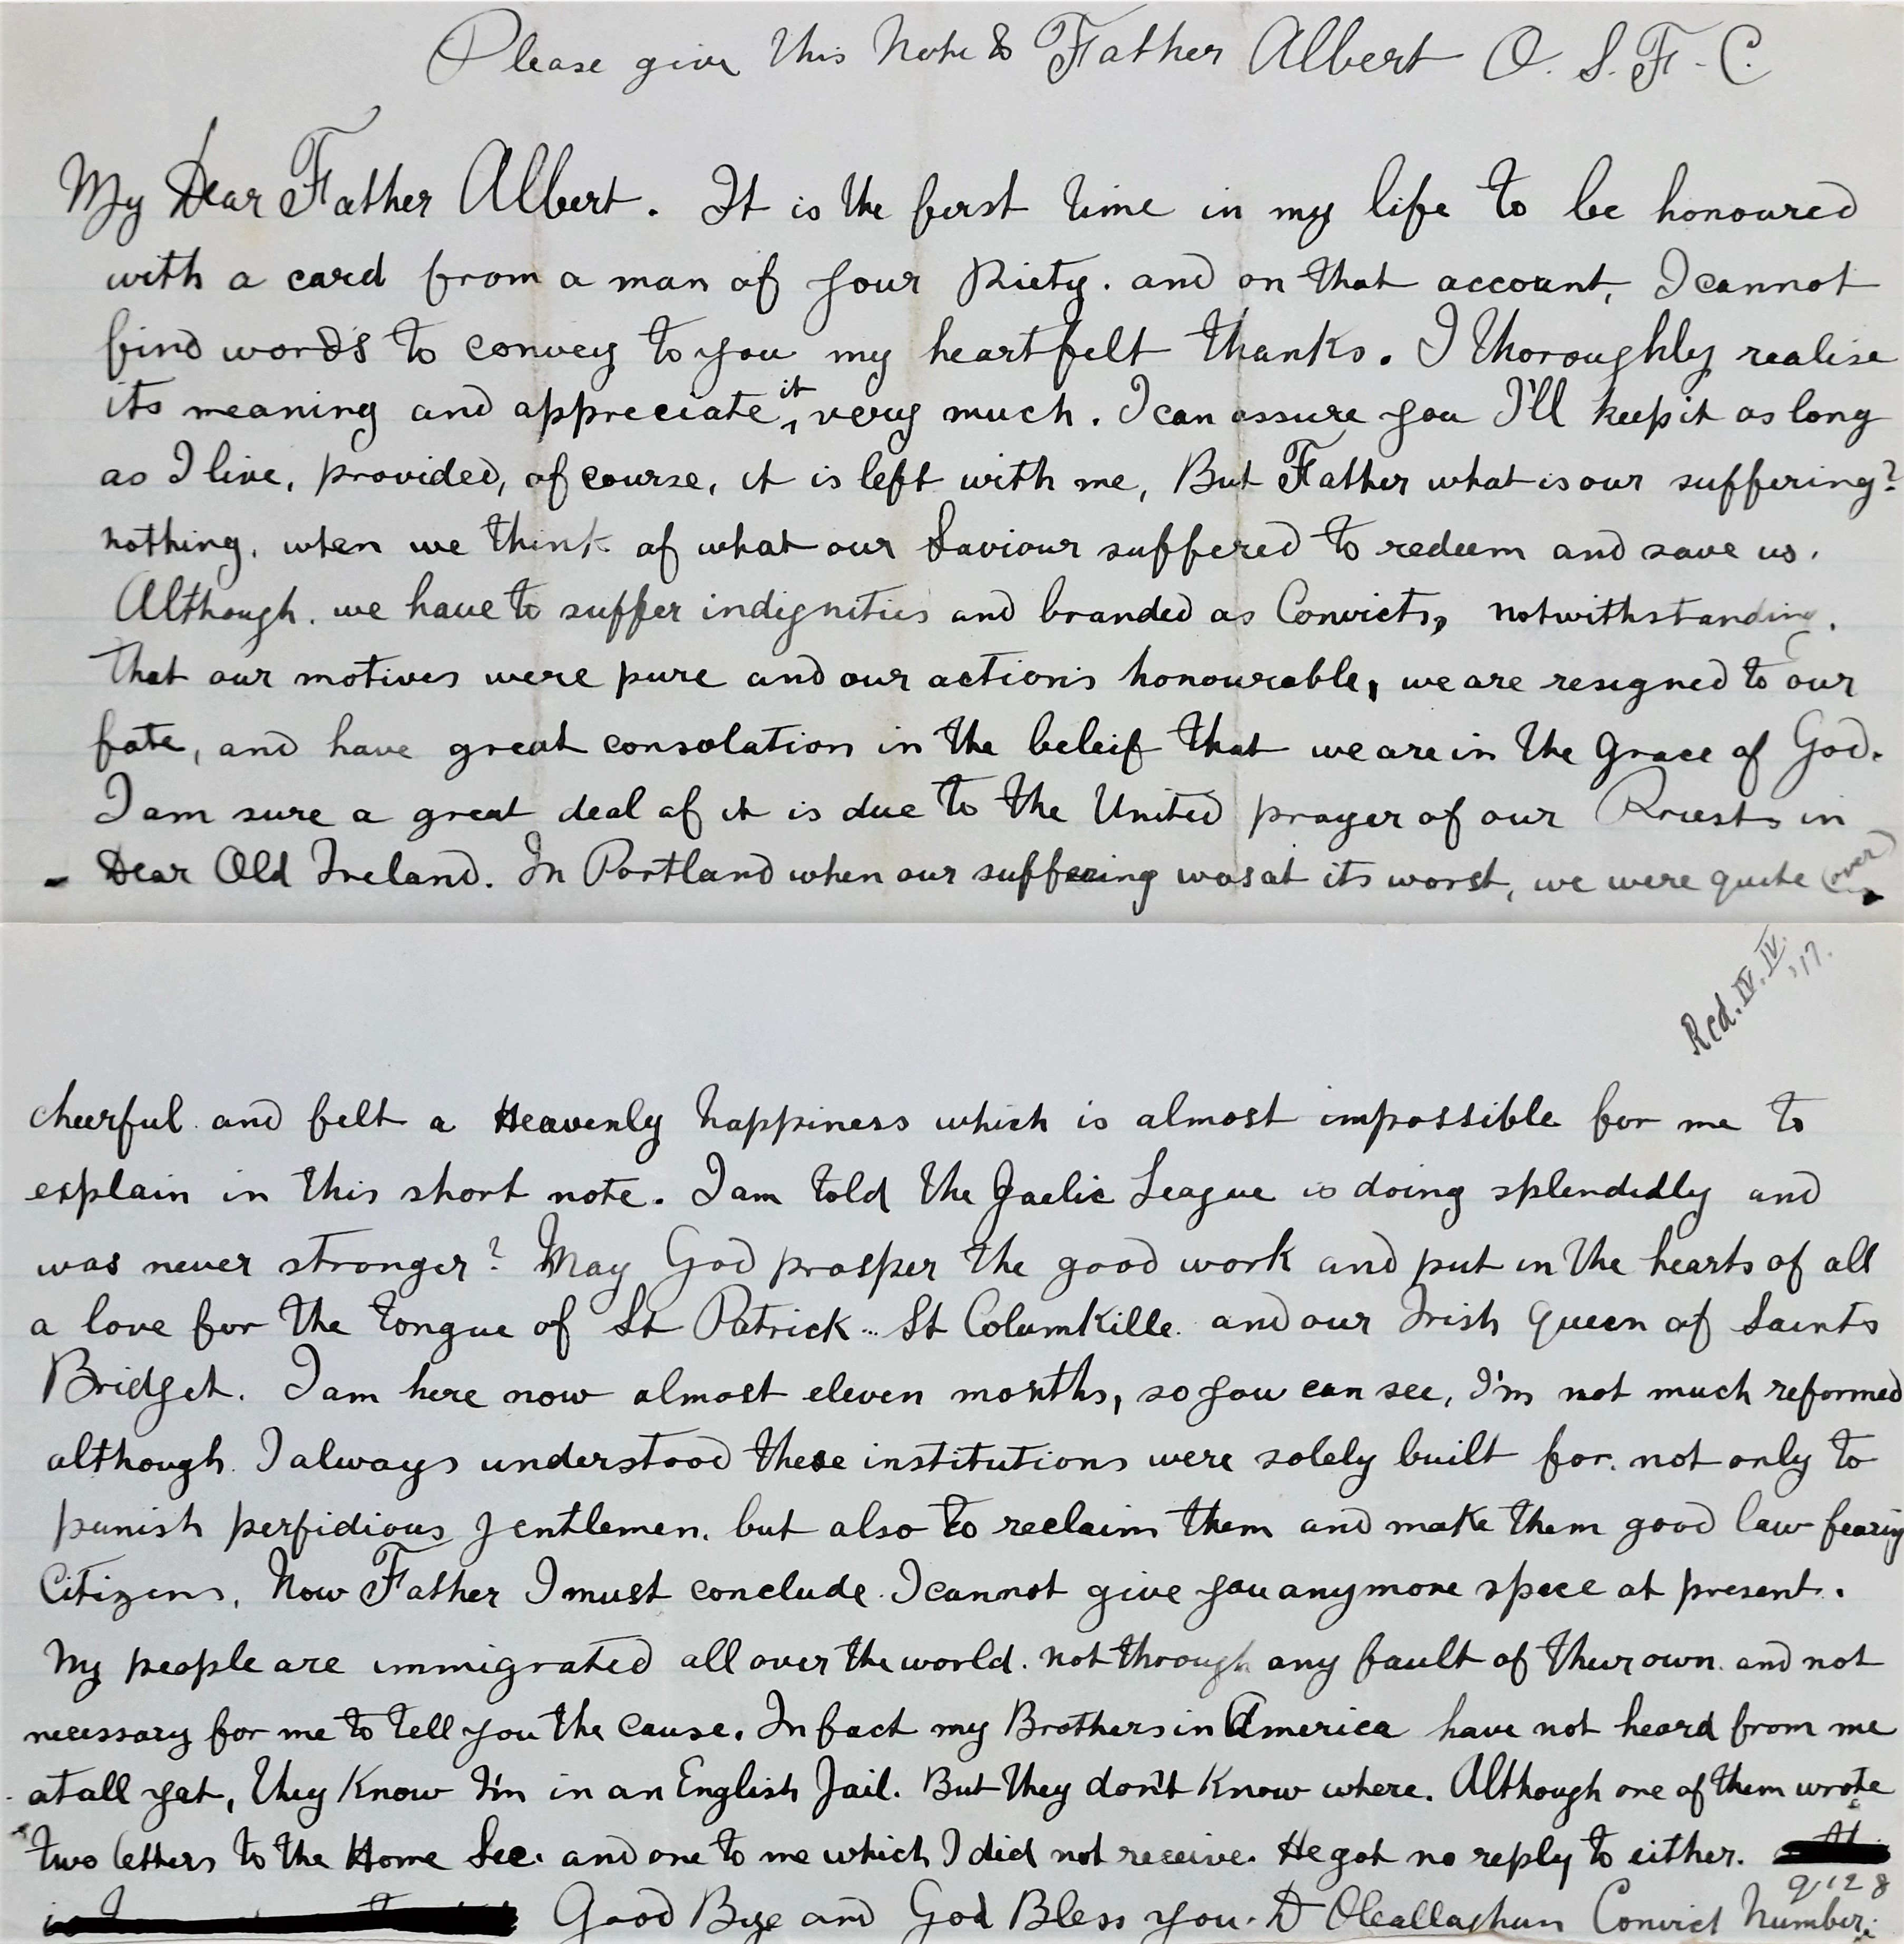 Please give this Note to Father Albert O. S. F. C.
My Dear Father Albert. It is the first time in my life to be honoured
with a card from a man of your Piety. and on that account, I cannot
find words to convey to you my heartfelt thanks. I thoroughly realise
its meaning and appreciate it, very much. I can assure you I'll keep it as long
as I live, provided, of course, it is left with me, But Father what is our suffering?
nothing, when we think of what our Saviour suffered to redeem and save us.
Although. we have to suffer indignities and branded as Convicts, notwithstanding.
that our motives were pure and our actions honourable, we are resigned to our
fate, and have great consolation in the beleif that we are in the Grace of God.
I am sure a great deal of it is due to the United prayer of our Priests in
Dear Old Ireland. In Portland when our suffering was at its worst, we were quite (over)
Rcd. IV. IV. '17.
cheerful and felt a Heavenly happiness which is almost impossible for me to
explain in this short note. I am told the Gaelic League is doing splendidly and
was never stronger? May God prosper the good work and put in the hearts of all
a love for the tongue of St Patrick.. St Columkille. and our Irish Queen of Saints
Bridget. I am here now almost eleven months, so you can see, I'm not much reformed
although. I always understood these institutions were solely built for. not only to
punish perfidious gentlemen. but also to reclaim them and make them good law fearing
Citizens, Now Father I must conclude. I cannot give you anymore space at present.
My people are immigrated all over the world. not through any fault of their own. and not
necessary for me to tell you the cause. In fact my Brothers in America have not heard from me
at all yet, they know I'm in an English Jail. But they don't know where. Although one of them wrote
two letters to the Home Sec. and one to me which I did not receive. He got no reply to either.
q128
Good Bye and God Bless you. D OCallaghan Convict Number: